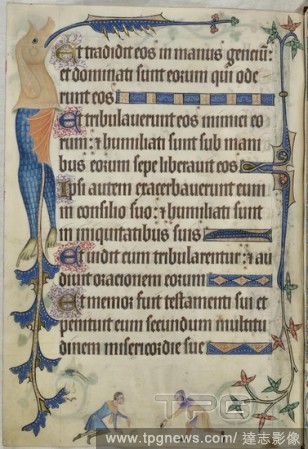 Et tradidit eos in manus genciū:
et dominati sunt eorum qui ode
runt eos
Et tribulauerunt eos inimici eo
rum: et humiliati sunt sub mani
bus eorum sepe liberauit eos
Ipsi autem exacerbauerunt eum
in consilio suo: et humiliati sunt
in iniquitatibus suis
Et uidit cum tribularentur: et au
diuit oracionem eorum
Et memor fuit testamenti sui et
penituit eum secundum multitu
dinem misericordie sue
TPG
www.tpgnews.com/ 達志影像